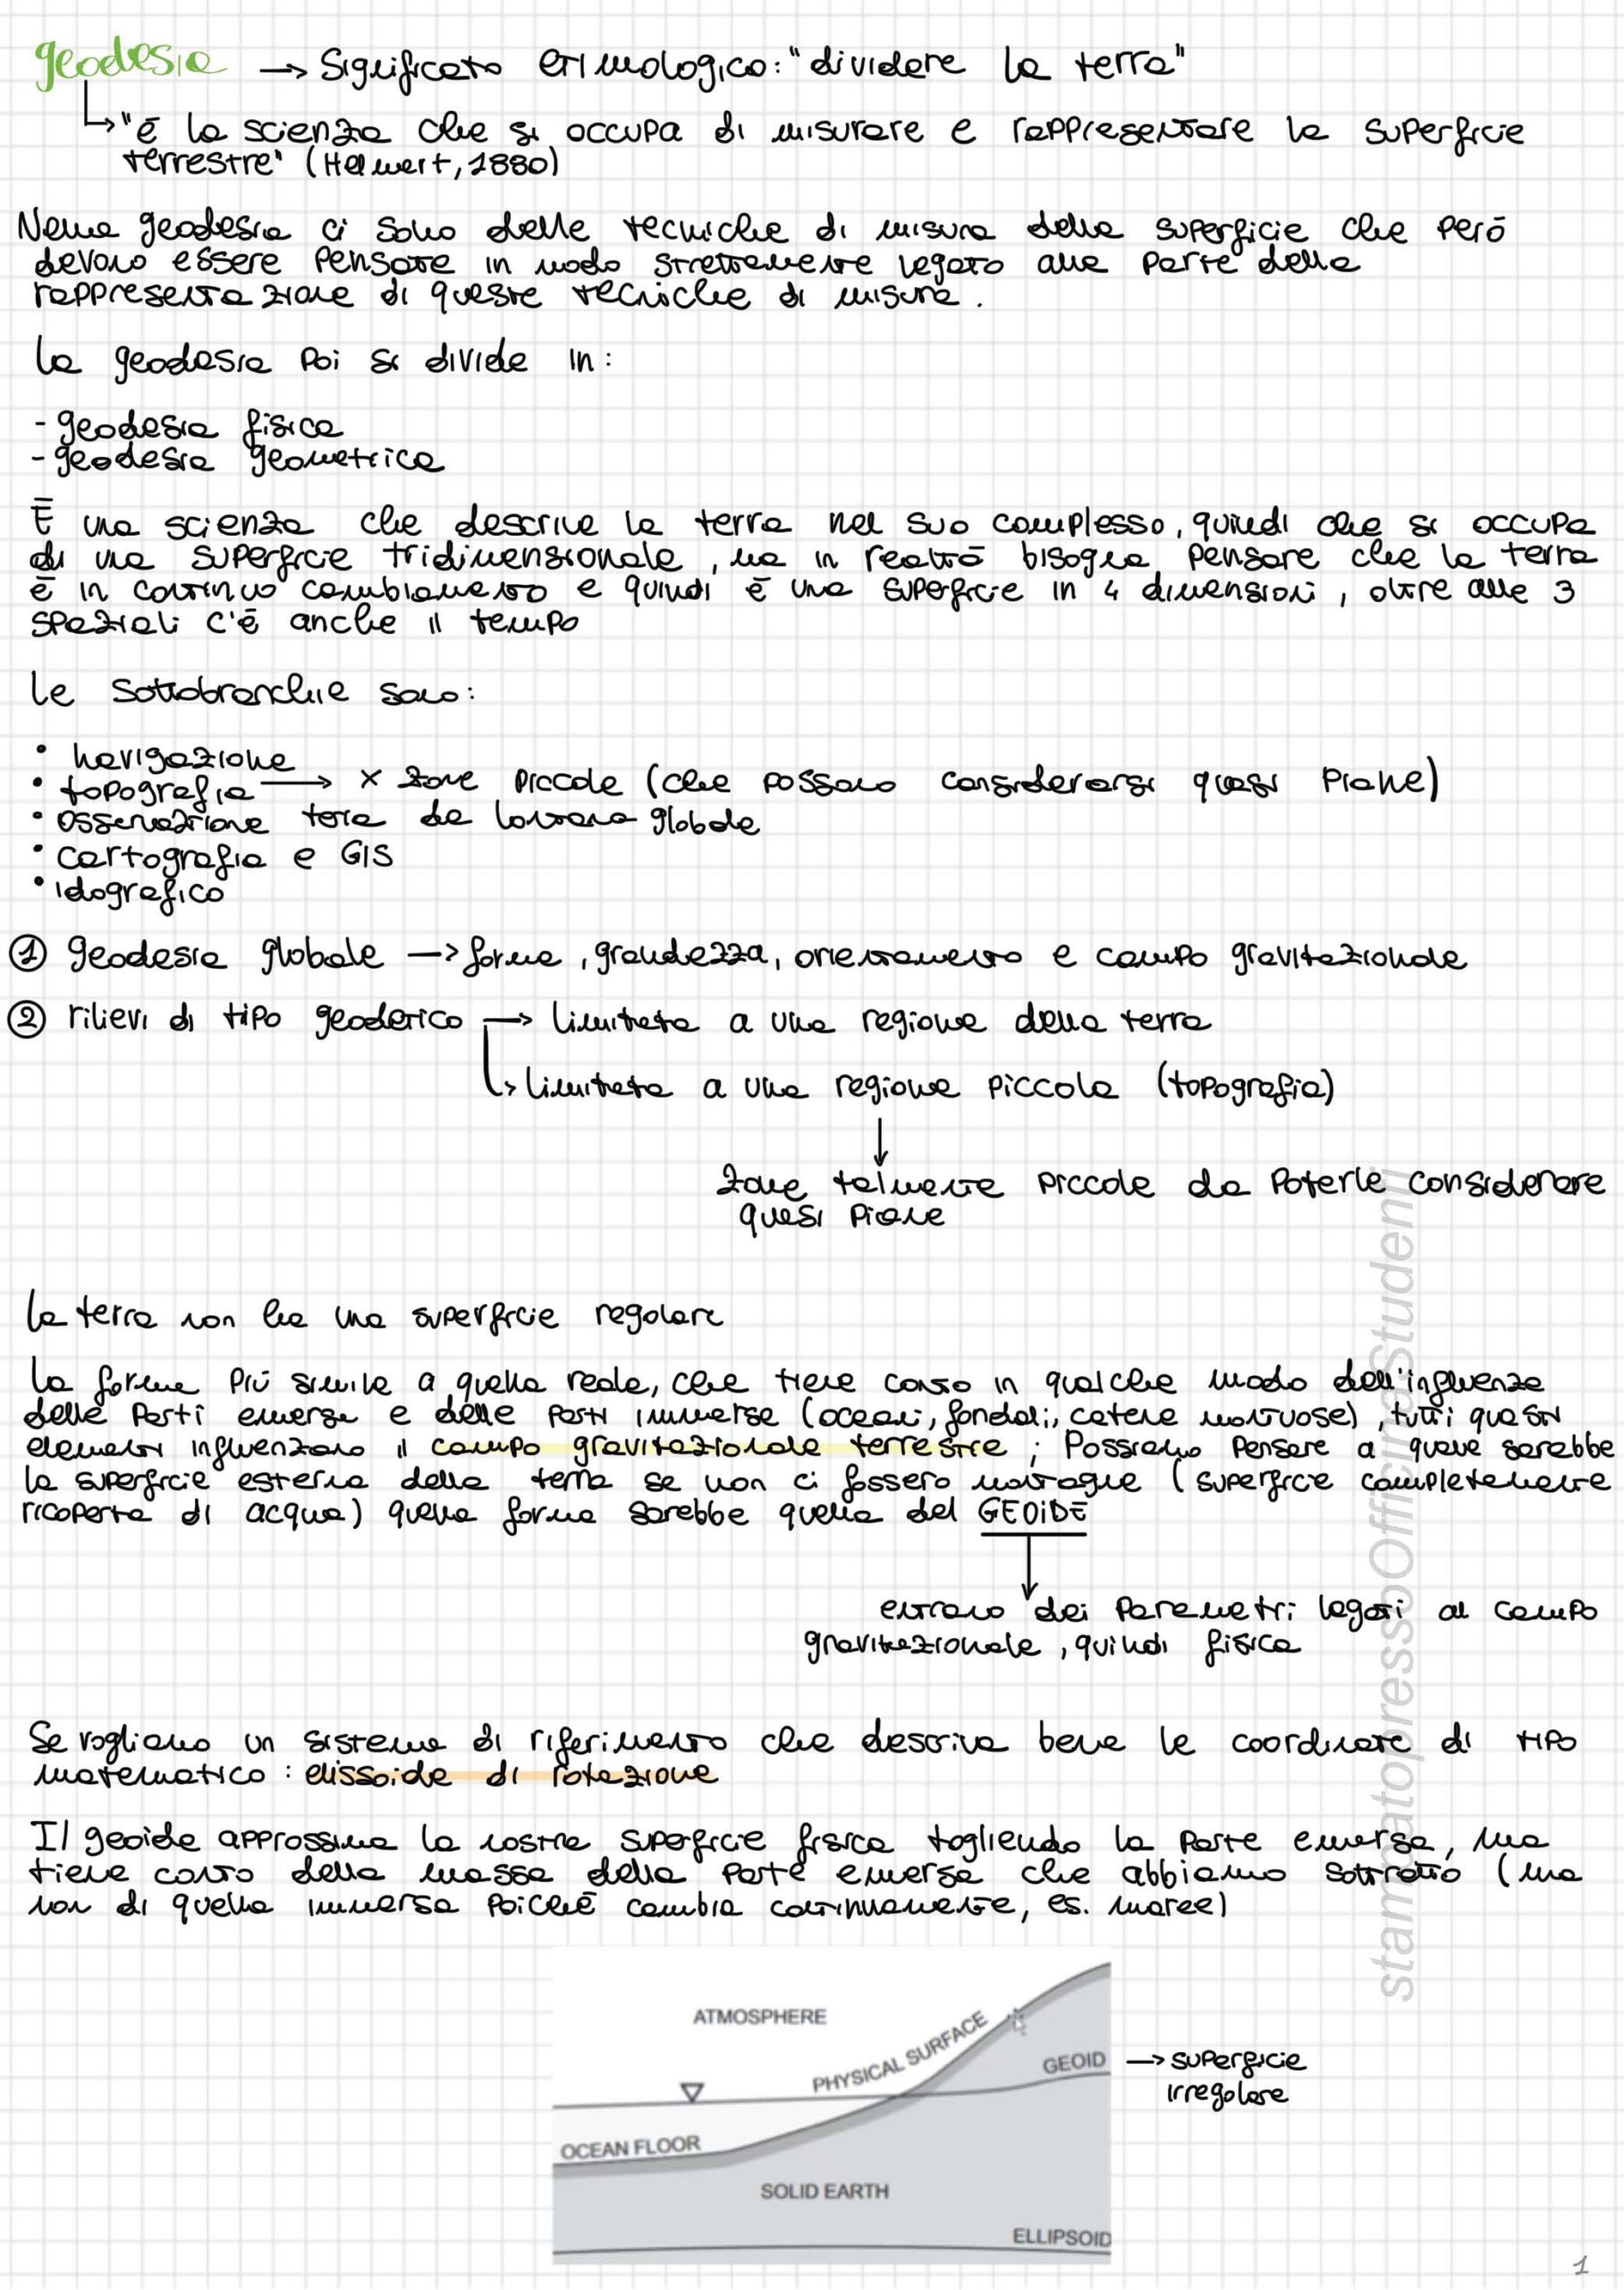 geodesia → Significato etimologico: "dividere la terra"
↳ "è la scienza che si occupa di misurare e rappresentare la superficie
terrestre" (Helmert, 1880)
Nella geodesia ci sono delle tecniche di misura della superficie che però
devono essere pensate in modo strettamente legato alla parte della
rappresentazione di queste tecniche di misura.
la geodesia poi si divide in:
- geodesia fisica
- geodesia geometrica
È una scienza che descrive la terra nel suo complesso, quindi che si occupa
di una superficie tridimensionale, ma in realtà bisogna pensare che la terra
è in continuo cambiamento e quindi è una superficie in 4 dimensioni, oltre alle 3
spaziali c'è anche il tempo
le sottobranchie sono:
• navigazione
• topografia → x zone piccole (che possono considerarsi quasi piane)
• osservazione terra da lontano globale
• cartografia e GIS
• idografico
① geodesia globale → forma, grandezza, orientamento e campo gravitazionale
② rilievi di tipo geodetico → limitata a una regione della terra
↳ limitata a una regione piccola (topografia)
↓
zone talmente piccole da poterle considerare
quasi piane
la terra non ha una superficie regolare
la forma più simile a quella reale, che tiene conto in qualche modo dell'influenza
delle parti emerse e delle parti immerse (oceani, fondali, catene montuose), tutti questi
elementi influenzano il campo gravitazionale terrestre; possiamo pensare a quale sarebbe
la superficie esterna della terra se non ci fossero montagne (superfice completamente
ricoperta di acqua) quella forma sarebbe quella del GEOIDE
↓
entrano dei parametri legati al campo
gravitazionale, quindi fisica
Se vogliamo un sistema di riferimento che descriva bene le coordinate di tipo
matematico: elissoide di rotazione
Il geoide approssima la nostra superficie fisica togliendo la parte emersa, ma
tiene conto della massa della parte emersa che abbiamo sottratto (ma
non di quella immersa poiché cambia continuamente, es. maree)
ATMOSPHERE
PHYSICAL SURFACE
GEOID → superficie
irregolare
OCEAN FLOOR
SOLID EARTH
ELLIPSOID
stampatopressoOfficinaStudenti
1